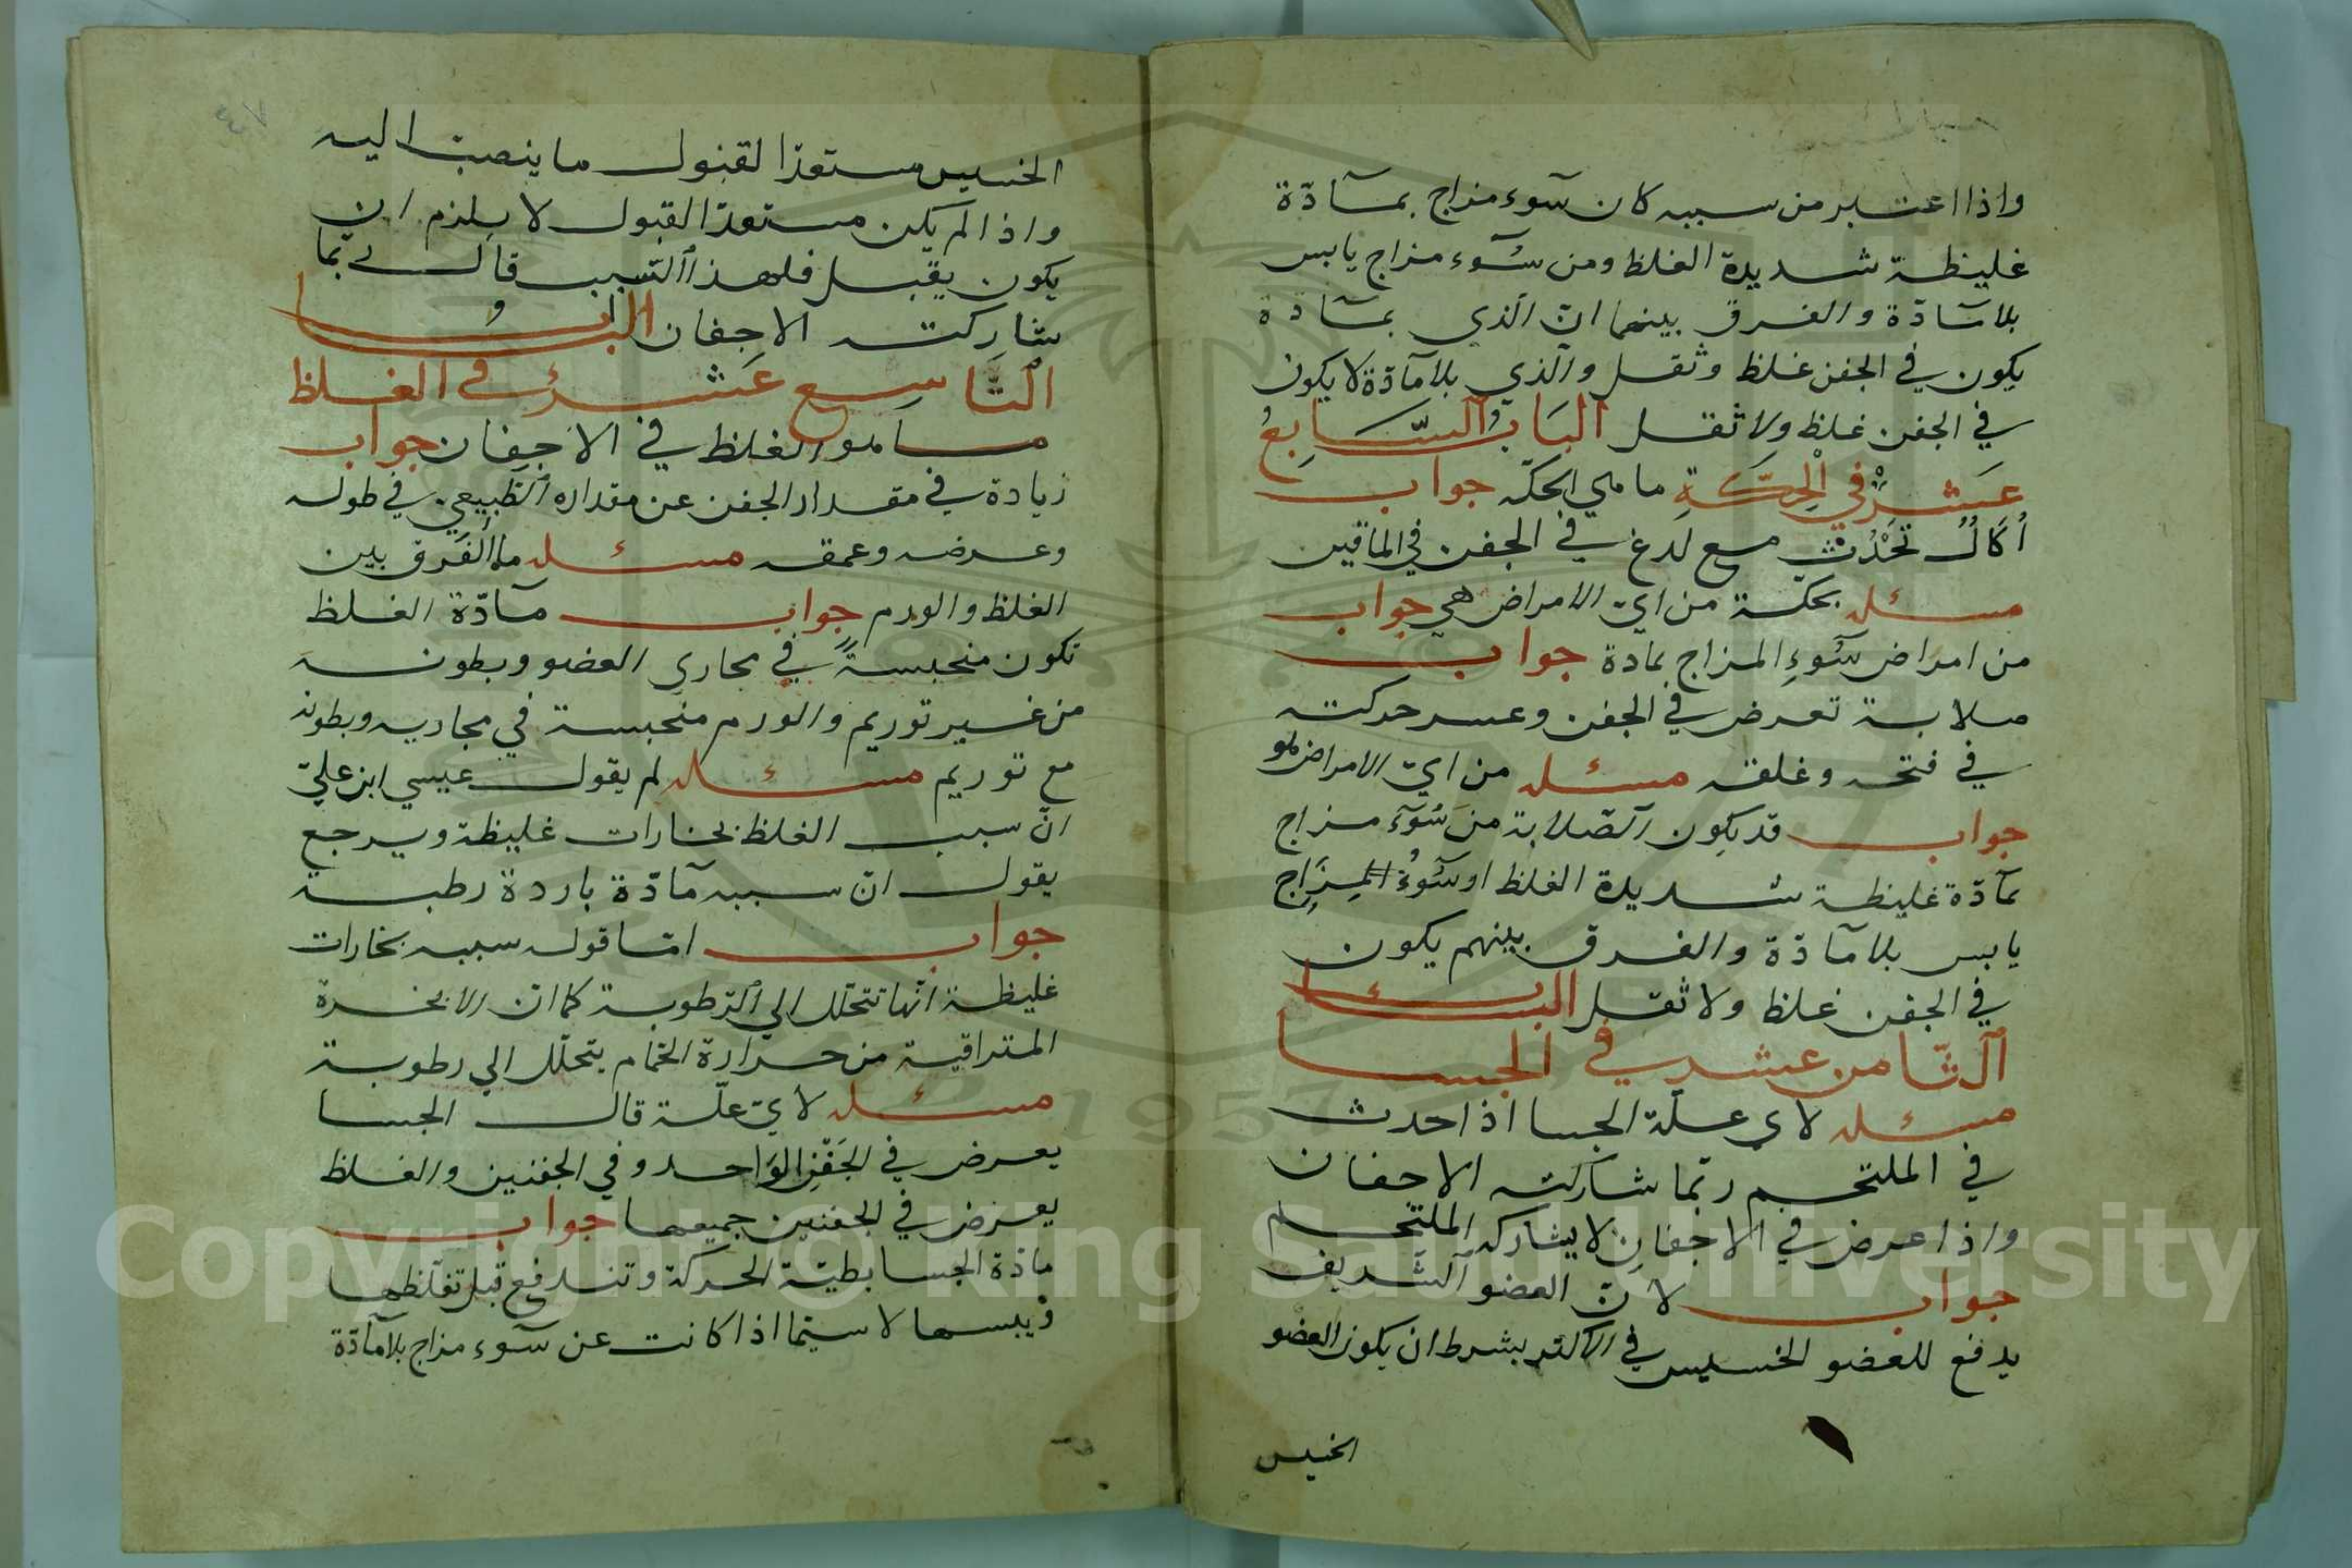 واذا اعتبر من سببه كان سوء مزاج بمآدّة
غليظة شديدة الغلظ ومن سُوء مزاج يابس
بلا مآدّة والفرق بينهما انّ الّذي بمآدة
يكون في الجفن غلظ وثقل والّذي بلا مآدّة لا يكون
في الجفن غلظ ولا ثقل البَابُ السّابِعُ
عَشَر في الْحِكَّةِ ما هي الحكّه جواب
أُكَالٌ تَحْدُث مع لدغ في الجفن في الماقين
مسئله بحكة من ايّ الامراض هي جواب
من امراض سُوءِ المزاج بمادة جواب
صلابة تعرض في الجفن وعسر حركته
في فتحه وغلقه مسئله من ايّ الامراض هو
جواب قد يكون الصّلابة من سُوَء مزاج
بمآدّة غليظة شديدة الغلظ او سُوءُ المِزَاجِ
يابس بلا مآدّة والفرق بينهم يكون
في الجفن غلظ ولا ثقل الباب
الثّامن عشر في الجسا
مسئله لاي علّة الجسا اذا حدث
في الملتحم ربّما شاركته الاجفان
واذا عرض في الاجفان لا يشاركه الملتحم
جواب لانّ العضو الشّريف
يدفع للعضو الخسيس في الاكثر بشرط ان يكون العضو
الخسيس
الخسيس مستعدّا لقبول ما ينصبّ اليه
واذا لم يكن مستعدّا لقبول لا يلزم ان
يكون يقبل فلهذا السّبب قال ربّما
شاركته الاجفان البابُ
التَّاسِع عَشَرُ في الغلظ
ما هو الغلظ في الاجفان جواب
زيادة في مقدار الجفن عن مقداره الطّبيعي في طوله
وعرضه وعمقه مسئله ما الفَرق بين
الغلظ والورم جواب مآدّة الغلظ
تكون منحبسةً في مجاري العضو وبطونه
من غير توريم والورم منحبسة في مجاريه وبطونه
مع توريم مسئله لم يقول عيسي ابن عليّ
انّ سبب الغلظ بخارات غليظة ويرجع
يقول انّ سببه مآدّة باردة رطبة
جواب امّا قوله سببه بخارات
غليظة انّها تتحلّل الي الرّطوبة كما انّ الابخرة
المتراقية من حرارة الحمّام يتحلّل الي رطوبة
مسئله لايّ علّة قال الجسا
يعرض في الجَفْنِ الوَاحد وفي الجفنين والغلظ
يعرض في الجفنين جميعها جواب
مادّة الجسا بطيّة الحركة وتندفع قبل تغلّظها
ويبسها لا سيّما اذا كانت عن سوء مزاج بلا مآدّة
Copyright © King Saud University
1957